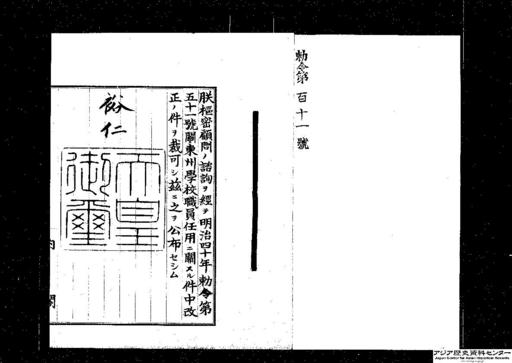 勅令第百十一號
朕樞密顧問ノ諮詢ヲ經テ明治四十年勅令第
五十一號關東州學校職員任用ニ關スル件中改
正ノ件ヲ裁可シ茲ニ之ヲ公布セシム
裕仁
天皇
御璽
内閣
アジア歴史資料センター
Japan Center for Asian Historical Records